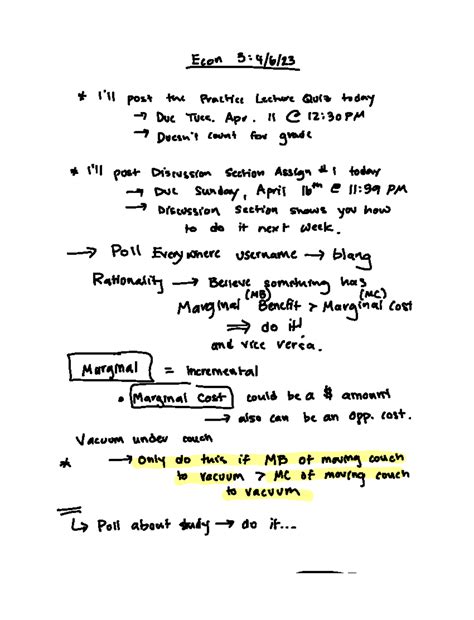 Econ 3: 4/6/23
* I'll post the Practice Lecture Quiz today
→ Due Tues. Apr. 11 @ 12:30 PM
→ Doesn't count for grade
* I'll post Discussion Section Assign #1 today
→ Due Sunday, April 16th @ 11:59 PM
→ Discussion Section shows you how
to do it next week.
→ Poll Everywhere username → blang
Rationality → Believe something has
Marginal (MB) Benefit > Marginal (MC) Cost
⇒ do it!
and vice versa.
Marginal = incremental
• Marginal Cost could be a $ amount
→ also can be an opp. cost.
Vacuum under couch
* → Only do this if MB of moving couch
to vacuum > MC of moving couch
to vacuum
↳ Poll about study → do it...